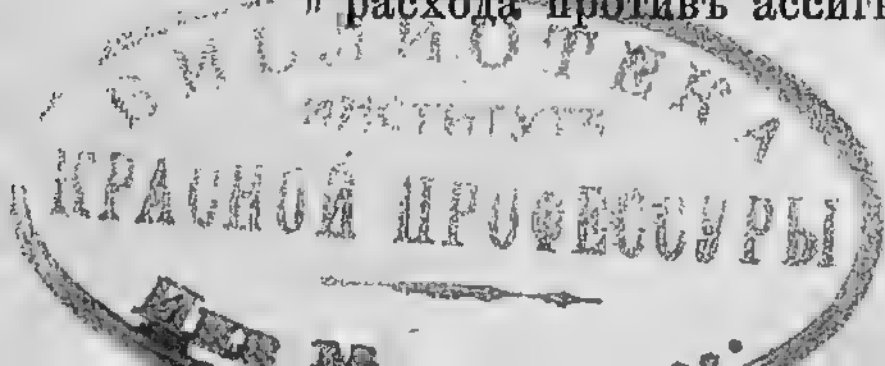 " расхода противъ ассигн
БИБЛИОТЕКА
ИНСТИТУТА
КРАСНОЙ ПРОФЕССУРЫ